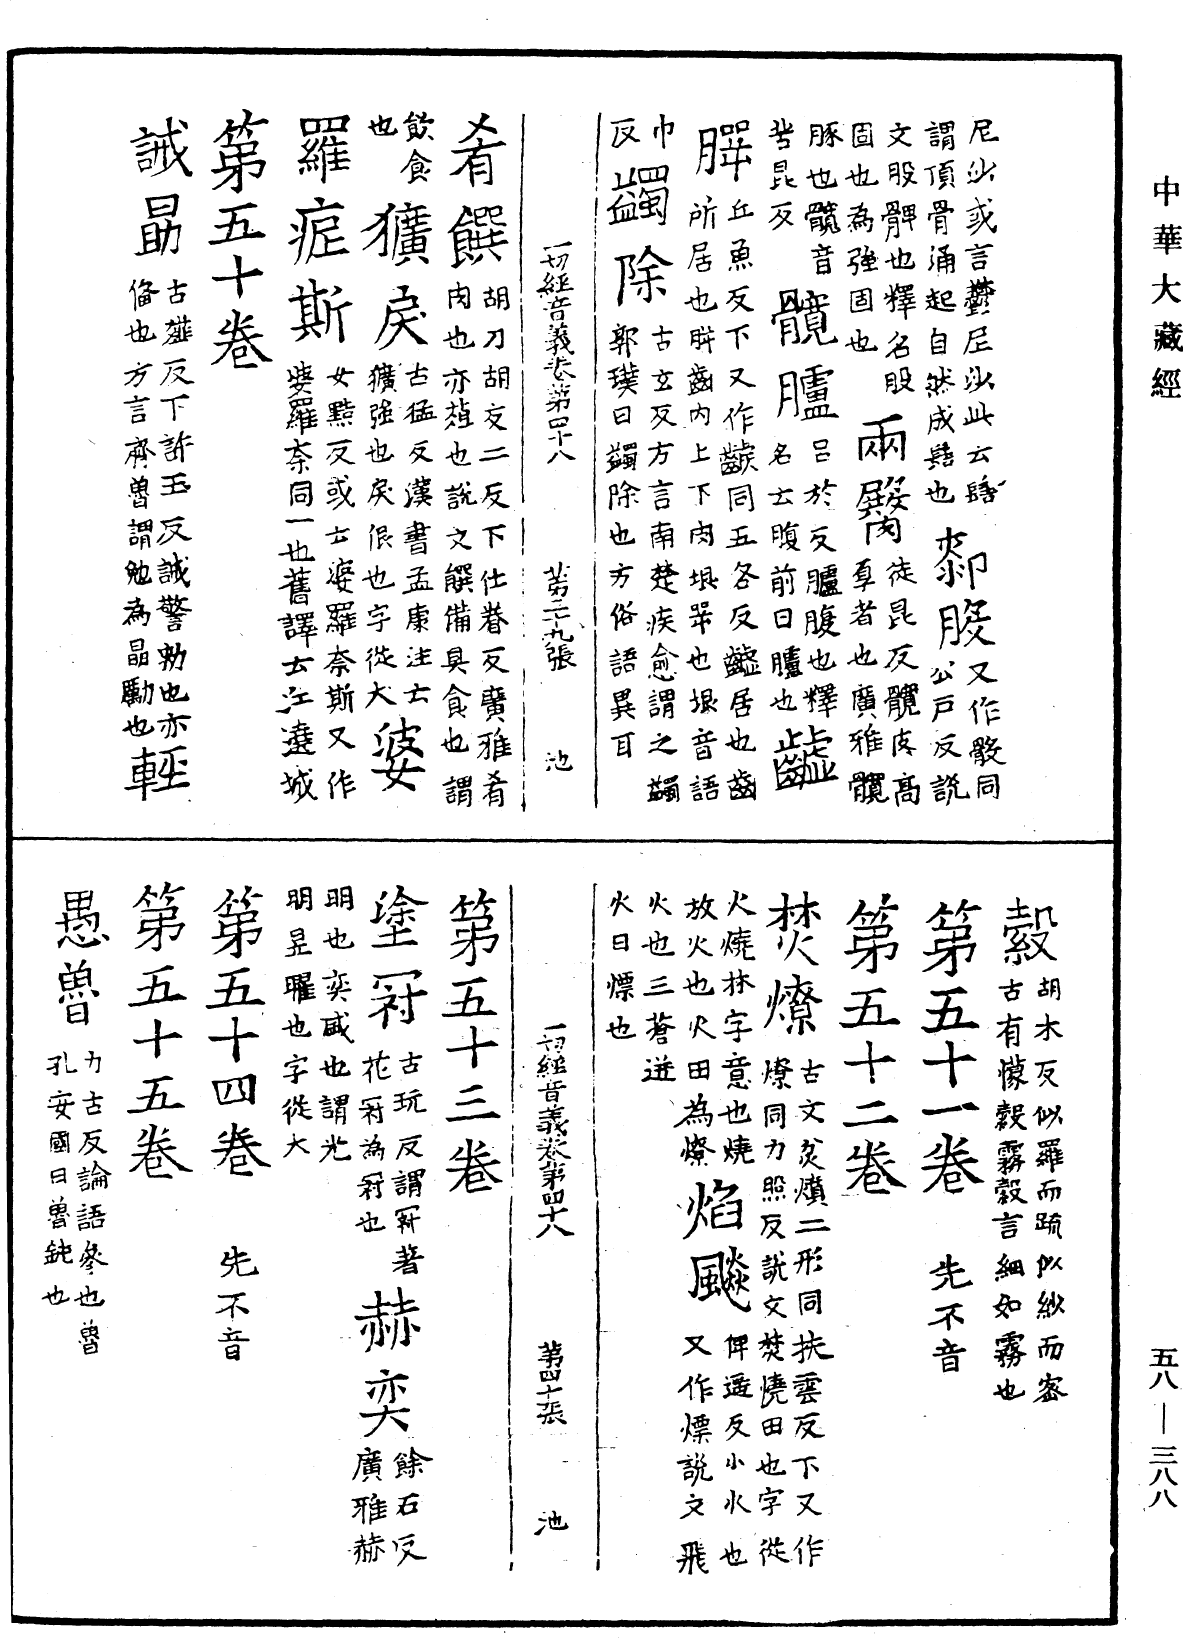 中華大藏經
尼沙或言鬱尼沙此云髻
謂頂骨涌起自然成髻也
䣛股
又作骰同
公戶反說
文股髀也釋名股
固也為強固也
兩臋
徒昆反
豚也
音
苦昆反
髖臚
呂於反臚腹也釋
名云腹前曰臚也
丘魚反下又作同五各反居也齒
所居也齗齒內上下肉垠咢也垠音語
巾反
蠲除
古玄反方言南楚疾愈謂之蠲
郭璞曰蠲除也方俗語異耳
一切經音義卷第四十八 第三十九張 池
肴饌
胡刀胡交二反下仕眷反廣雅肴
肉也亦葅也說文饌備具食也謂
飲食也
獷戾
古猛反漢書孟康注云
獷強也戾佷也字從犬
婆羅痆斯
女黠反或云婆羅奈斯又作
婆羅奈同一也舊譯云江遶城
第五十卷
誡勗
古薤反下許玉反誡警勑也亦
俻也方言齊魯謂勉為勗勵也
輕縠
胡木反似羅而疏似紗而密
古有㡔縠霧縠言細如霧也
第五十一卷 先不音
第五十二卷
焚燎
古文炃燌二形同扶雲反下又作
燎同力照反說文焚燒田也字從
火燒林字意也燒
放火也火田為燎
焰飇
俾遥反小火也
又作熛說文飛
火也三蒼迸
火曰熛也
一切經音義卷第四十八 第四十張 池
第五十三卷
塗冠
古玩反謂冠著
花冠為冠也
赫奕
餘石反
廣雅赫
明也奕盛也謂光
明昱曜也字從大
第五十四卷 先不音
第五十五卷
愚魯
力古反論語參也魯
孔安國曰魯鈍也
五八—三八八